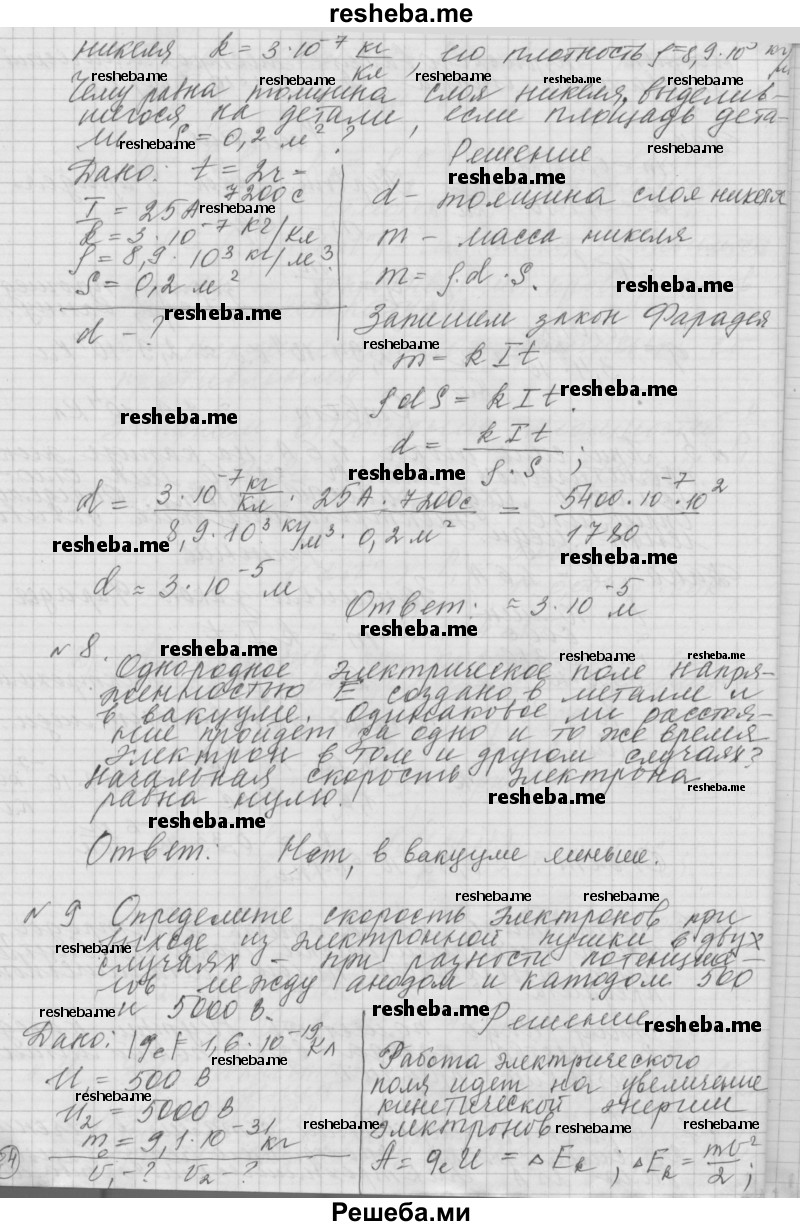 resheba.me
никеля k = 3·10⁻⁷ кг/Кл, его плотность ρ=8,9·10³ кг/м³
Чему равна толщина слоя никеля, выделив-
шегося на детали, если площадь дета-
ли S = 0,2 м² ?
Дано: t = 2ч =
7200с
I = 25А
k = 3·10⁻⁷ кг/Кл
ρ = 8,9·10³ кг/м³
S = 0,2 м²
d - ?
Решение
d - толщина слоя никеля
m - масса никеля
m = ρ·d·S.
Запишем закон Фарадея
m = kIt
ρdS = kIt.
d = kIt / ρ·S ;
d = 3·10⁻⁷ кг/Кл · 25А · 7200с / 8,9·10³ кг/м³ · 0,2м² = 5400·10⁻⁷·10² / 1780
d ≈ 3·10⁻⁵ м
Ответ: ≈ 3·10⁻⁵ м
№ 8.
Однородное электрическое поле напря-
женностью E создано в металле и
в вакууме. Одинаковое ли расстоя-
ние пройдет за одно и то же время
электрон в том и другом случаях?
Начальная скорость электрона
равна нулю.
Ответ: Нет, в вакууме меньше.
№ 9 Определите скорость электронов при
выходе из электронной пушки в двух
случаях - при разности потенциа-
лов между анодом и катодом 500
и 5000 В.
Дано: |qe| = 1,6·10⁻¹⁹ Кл
U₁ = 500 В
U₂ = 5000 В
m = 9,1·10⁻³¹ кг
υ₁ - ? υ₂ - ?
Решение
Работа электрического
поля идет на увеличение
кинетической энергии
электронов
A = qeU = ΔEk ; ΔEk = mυ²/2 ;
Решеба.ми